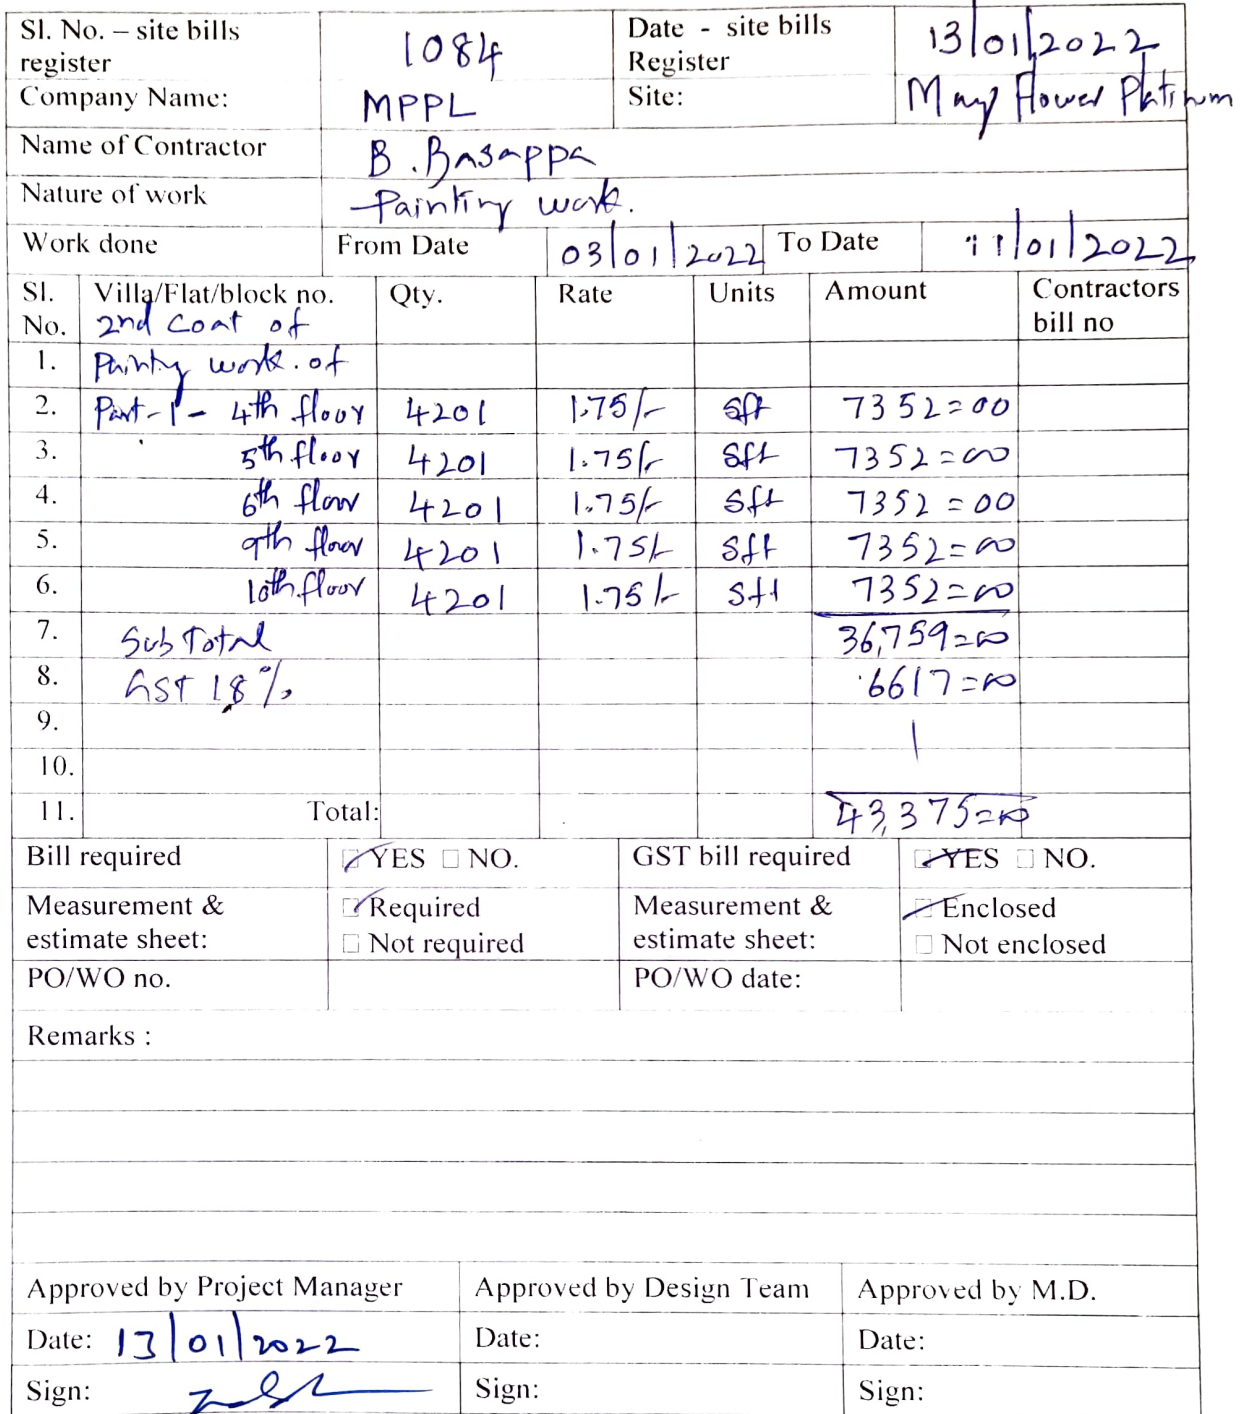 Sl. No. – site bills register 1084 Date - site bills Register 13/01/2022
Company Name: MPPL Site: May Flower Platinum
Name of Contractor B. Basappa
Nature of work Painting work.
Work done From Date 03/01/2022 To Date 11/01/2022
Sl. No. Villa/Flat/block no. Qty. Rate Units Amount Contractors bill no
2nd Coat of
1. Painting work. of
2. Part-1 - 4th floor 4201 1.75/- sft 7352=00
3. 5th floor 4201 1.75/- sft 7352=00
4. 6th floor 4201 1.75/- sft 7352=00
5. 9th floor 4201 1.75/- sft 7352=00
6. 10th floor 4201 1.75/- sft 7352=00
7. Sub Total 36,759=00
8. GST 18% 6617=00
9.
10.
11. Total: 43,375=00
Bill required YES NO. GST bill required YES NO.
Measurement & estimate sheet: Required Measurement & estimate sheet: Enclosed
Not required Not enclosed
PO/WO no. PO/WO date:
Remarks :
Approved by Project Manager Approved by Design Team Approved by M.D.
Date: 13/01/2022 Date: Date:
Sign: Sign: Sign: